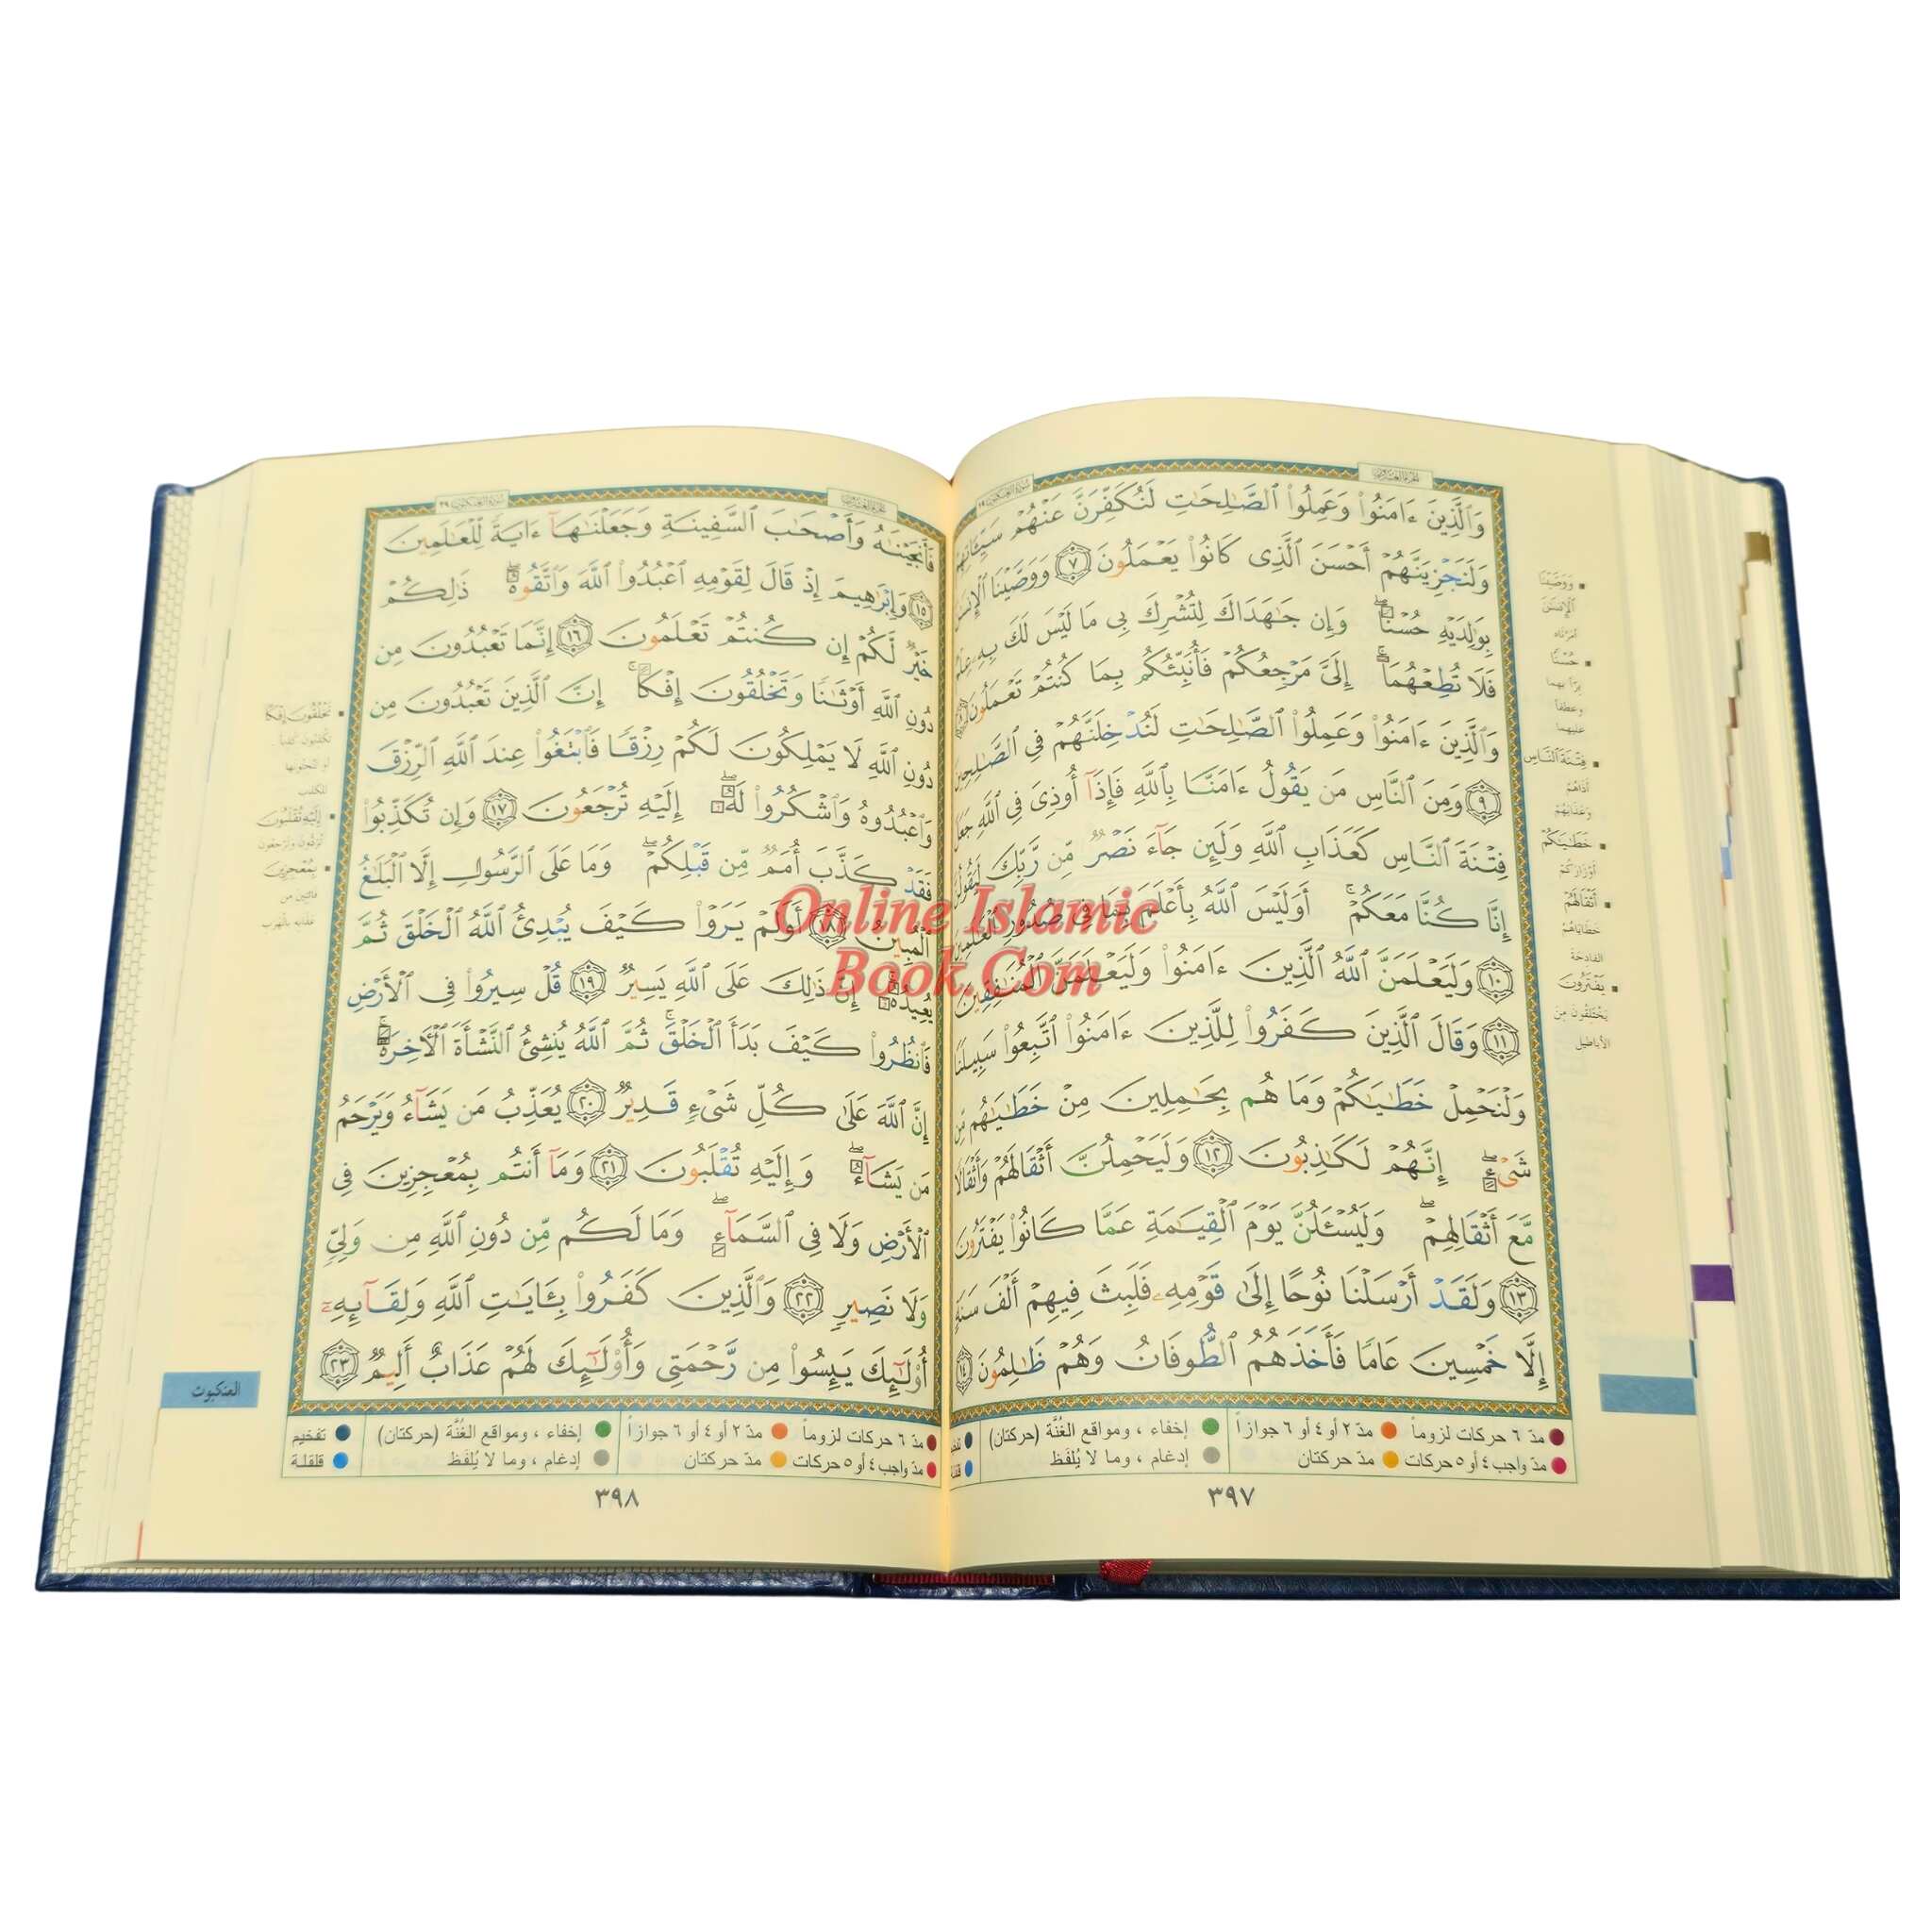 وَٱلَّذِينَ ءَامَنُوا۟ وَعَمِلُوا۟ ٱلصَّـٰلِحَـٰتِ لَنُكَفِّرَنَّ عَنْهُمْ سَيِّـَٔاتِهِمْ
وَلَنَجْزِيَنَّهُمْ أَحْسَنَ ٱلَّذِى كَانُوا۟ يَعْمَلُونَ ٧ وَوَصَّيْنَا ٱلْإِنسَـٰنَ
بِوَٰلِدَيْهِ حُسْنًا وَإِن جَـٰهَدَاكَ لِتُشْرِكَ بِى مَا لَيْسَ لَكَ بِهِۦ عِلْمٌ
فَلَا تُطِعْهُمَآ إِلَىَّ مَرْجِعُكُمْ فَأُنَبِّئُكُم بِمَا كُنتُمْ تَعْمَلُونَ ٨
وَٱلَّذِينَ ءَامَنُوا۟ وَعَمِلُوا۟ ٱلصَّـٰلِحَـٰتِ لَنُدْخِلَنَّهُمْ فِى ٱلصَّـٰلِحِينَ
٩ وَمِنَ ٱلنَّاسِ مَن يَقُولُ ءَامَنَّا بِٱللَّهِ فَإِذَآ أُوذِىَ فِى ٱللَّهِ جَعَلَ
فِتْنَةَ ٱلنَّاسِ كَعَذَابِ ٱللَّهِ وَلَئِن جَآءَ نَصْرٌ مِّن رَّبِّكَ لَيَقُولُنَّ
إِنَّا كُنَّا مَعَكُمْ أَوَلَيْسَ ٱللَّهُ بِأَعْلَمَ بِمَا فِى صُدُورِ ٱلْعَـٰلَمِينَ
١٠ وَلَيَعْلَمَنَّ ٱللَّهُ ٱلَّذِينَ ءَامَنُوا۟ وَلَيَعْلَمَنَّ ٱلْمُنَـٰفِقِينَ
١١ وَقَالَ ٱلَّذِينَ كَفَرُوا۟ لِلَّذِينَ ءَامَنُوا۟ ٱتَّبِعُوا۟ سَبِيلَنَا
وَلْنَحْمِلْ خَطَـٰيَـٰكُمْ وَمَا هُم بِحَـٰمِلِينَ مِنْ خَطَـٰيَـٰهُم مِّن
شَىْءٍ إِنَّهُمْ لَكَـٰذِبُونَ ١٢ وَلَيَحْمِلُنَّ أَثْقَالَهُمْ وَأَثْقَالًا
مَّعَ أَثْقَالِهِمْ وَلَيُسْـَٔلُنَّ يَوْمَ ٱلْقِيَـٰمَةِ عَمَّا كَانُوا۟ يَفْتَرُونَ
١٣ وَلَقَدْ أَرْسَلْنَا نُوحًا إِلَىٰ قَوْمِهِۦ فَلَبِثَ فِيهِمْ أَلْفَ سَنَةٍ
إِلَّا خَمْسِينَ عَامًا فَأَخَذَهُمُ ٱلطُّوفَانُ وَهُمْ ظَـٰلِمُونَ ١٤
وَوَصَّيْنَا
ٱلْإِنسَـٰنَ
أمرناه
حُسْنًا
بِرًّا بهما
وعطفًا
عليهما
فِتْنَةَ ٱلنَّاسِ
أذاهُمْ
وعَذابَهُمْ
خَطَـٰيَـٰكُمْ
أَوْزَارَكُمْ
أَثْقَالَهُمْ
خَطَايَاهُمُ
الفادحَة
يَفْتَرُونَ
يَخْتَلِقُونَ مِنَ
الأباطيل
مدّ ٦ حركات لزوماً مدّ ٢ أو ٤ أو ٦ جوازاً إخفاء ، ومواقع الغُنَّة (حركتان)
مدّ واجب ٤ أو ٥ حركات مدّ حركتان إدغام ، وما لا يُلفَظ
٣٩٧
فَأَنجَيْنَـٰهُ وَأَصْحَـٰبَ ٱلسَّفِينَةِ وَجَعَلْنَـٰهَآ ءَايَةً لِّلْعَـٰلَمِينَ
١٥ وَإِبْرَٰهِيمَ إِذْ قَالَ لِقَوْمِهِ ٱعْبُدُوا۟ ٱللَّهَ وَٱتَّقُوهُ ذَٰلِكُمْ
خَيْرٌ لَّكُمْ إِن كُنتُمْ تَعْلَمُونَ ١٦ إِنَّمَا تَعْبُدُونَ مِن
دُونِ ٱللَّهِ أَوْثَـٰنًا وَتَخْلُقُونَ إِفْكًا إِنَّ ٱلَّذِينَ تَعْبُدُونَ مِن
دُونِ ٱللَّهِ لَا يَمْلِكُونَ لَكُمْ رِزْقًا فَٱبْتَغُوا۟ عِندَ ٱللَّهِ ٱلرِّزْقَ
وَٱعْبُدُوهُ وَٱشْكُرُوا۟ لَهُۥٓ إِلَيْهِ تُرْجَعُونَ ١٧ وَإِن تُكَذِّبُوا۟
فَقَدْ كَذَّبَ أُمَمٌ مِّن قَبْلِكُمْ وَمَا عَلَى ٱلرَّسُولِ إِلَّا ٱلْبَلَـٰغُ
ٱلْمُبِينُ ١٨ أَوَلَمْ يَرَوْا۟ كَيْفَ يُبْدِئُ ٱللَّهُ ٱلْخَلْقَ ثُمَّ
يُعِيدُهُۥٓ إِنَّ ذَٰلِكَ عَلَى ٱللَّهِ يَسِيرٌ ١٩ قُلْ سِيرُوا۟ فِى ٱلْأَرْضِ
فَٱنظُرُوا۟ كَيْفَ بَدَأَ ٱلْخَلْقَ ثُمَّ ٱللَّهُ يُنشِئُ ٱلنَّشْأَةَ ٱلْـَٔاخِرَةَ
إِنَّ ٱللَّهَ عَلَىٰ كُلِّ شَىْءٍ قَدِيرٌ ٢٠ يُعَذِّبُ مَن يَشَآءُ وَيَرْحَمُ
مَن يَشَآءُ وَإِلَيْهِ تُقْلَبُونَ ٢١ وَمَآ أَنتُم بِمُعْجِزِينَ فِى
ٱلْأَرْضِ وَلَا فِى ٱلسَّمَآءِ وَمَا لَكُم مِّن دُونِ ٱللَّهِ مِن وَلِىٍّ
وَلَا نَصِيرٍ ٢٢ وَٱلَّذِينَ كَفَرُوا۟ بِـَٔايَـٰتِ ٱللَّهِ وَلِقَآئِهِۦٓ
أُو۟لَـٰٓئِكَ يَئِسُوا۟ مِن رَّحْمَتِى وَأُو۟لَـٰٓئِكَ لَهُمْ عَذَابٌ أَلِيمٌ ٢٣
تَخْلُقُونَ إِفْكًا
إِلَيْهِ تُقْلَبُونَ
بِمُعْجِزِينَ
فائتين من
عذابه بالهرب
العنكبوت
مدّ ٦ حركات لزوماً مدّ ٢ أو ٤ أو ٦ جوازاً إخفاء ، ومواقع الغُنَّة (حركتان) تفخيم
مدّ واجب ٤ أو ٥ حركات مدّ حركتان إدغام ، وما لا يُلفَظ قلقلة
٣٩٨
Online Islamic
Book.Com